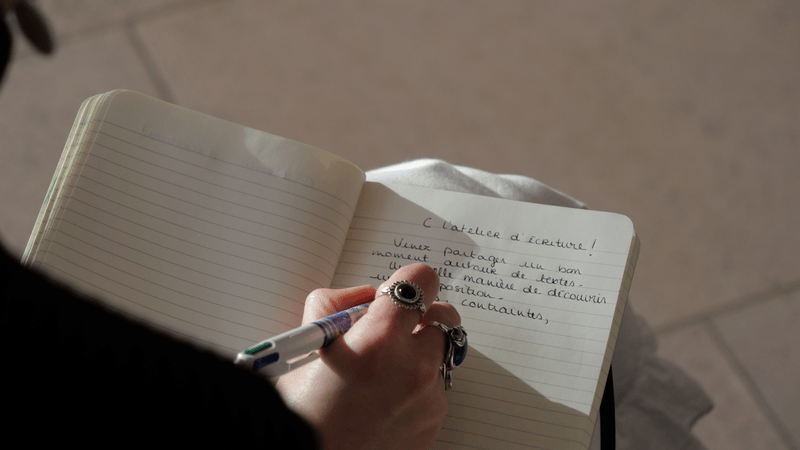 C l'atelier d'écriture !
Venez partager un bon
moment autour de textes.
Une elle manière de découvrir
position.
contraintes,